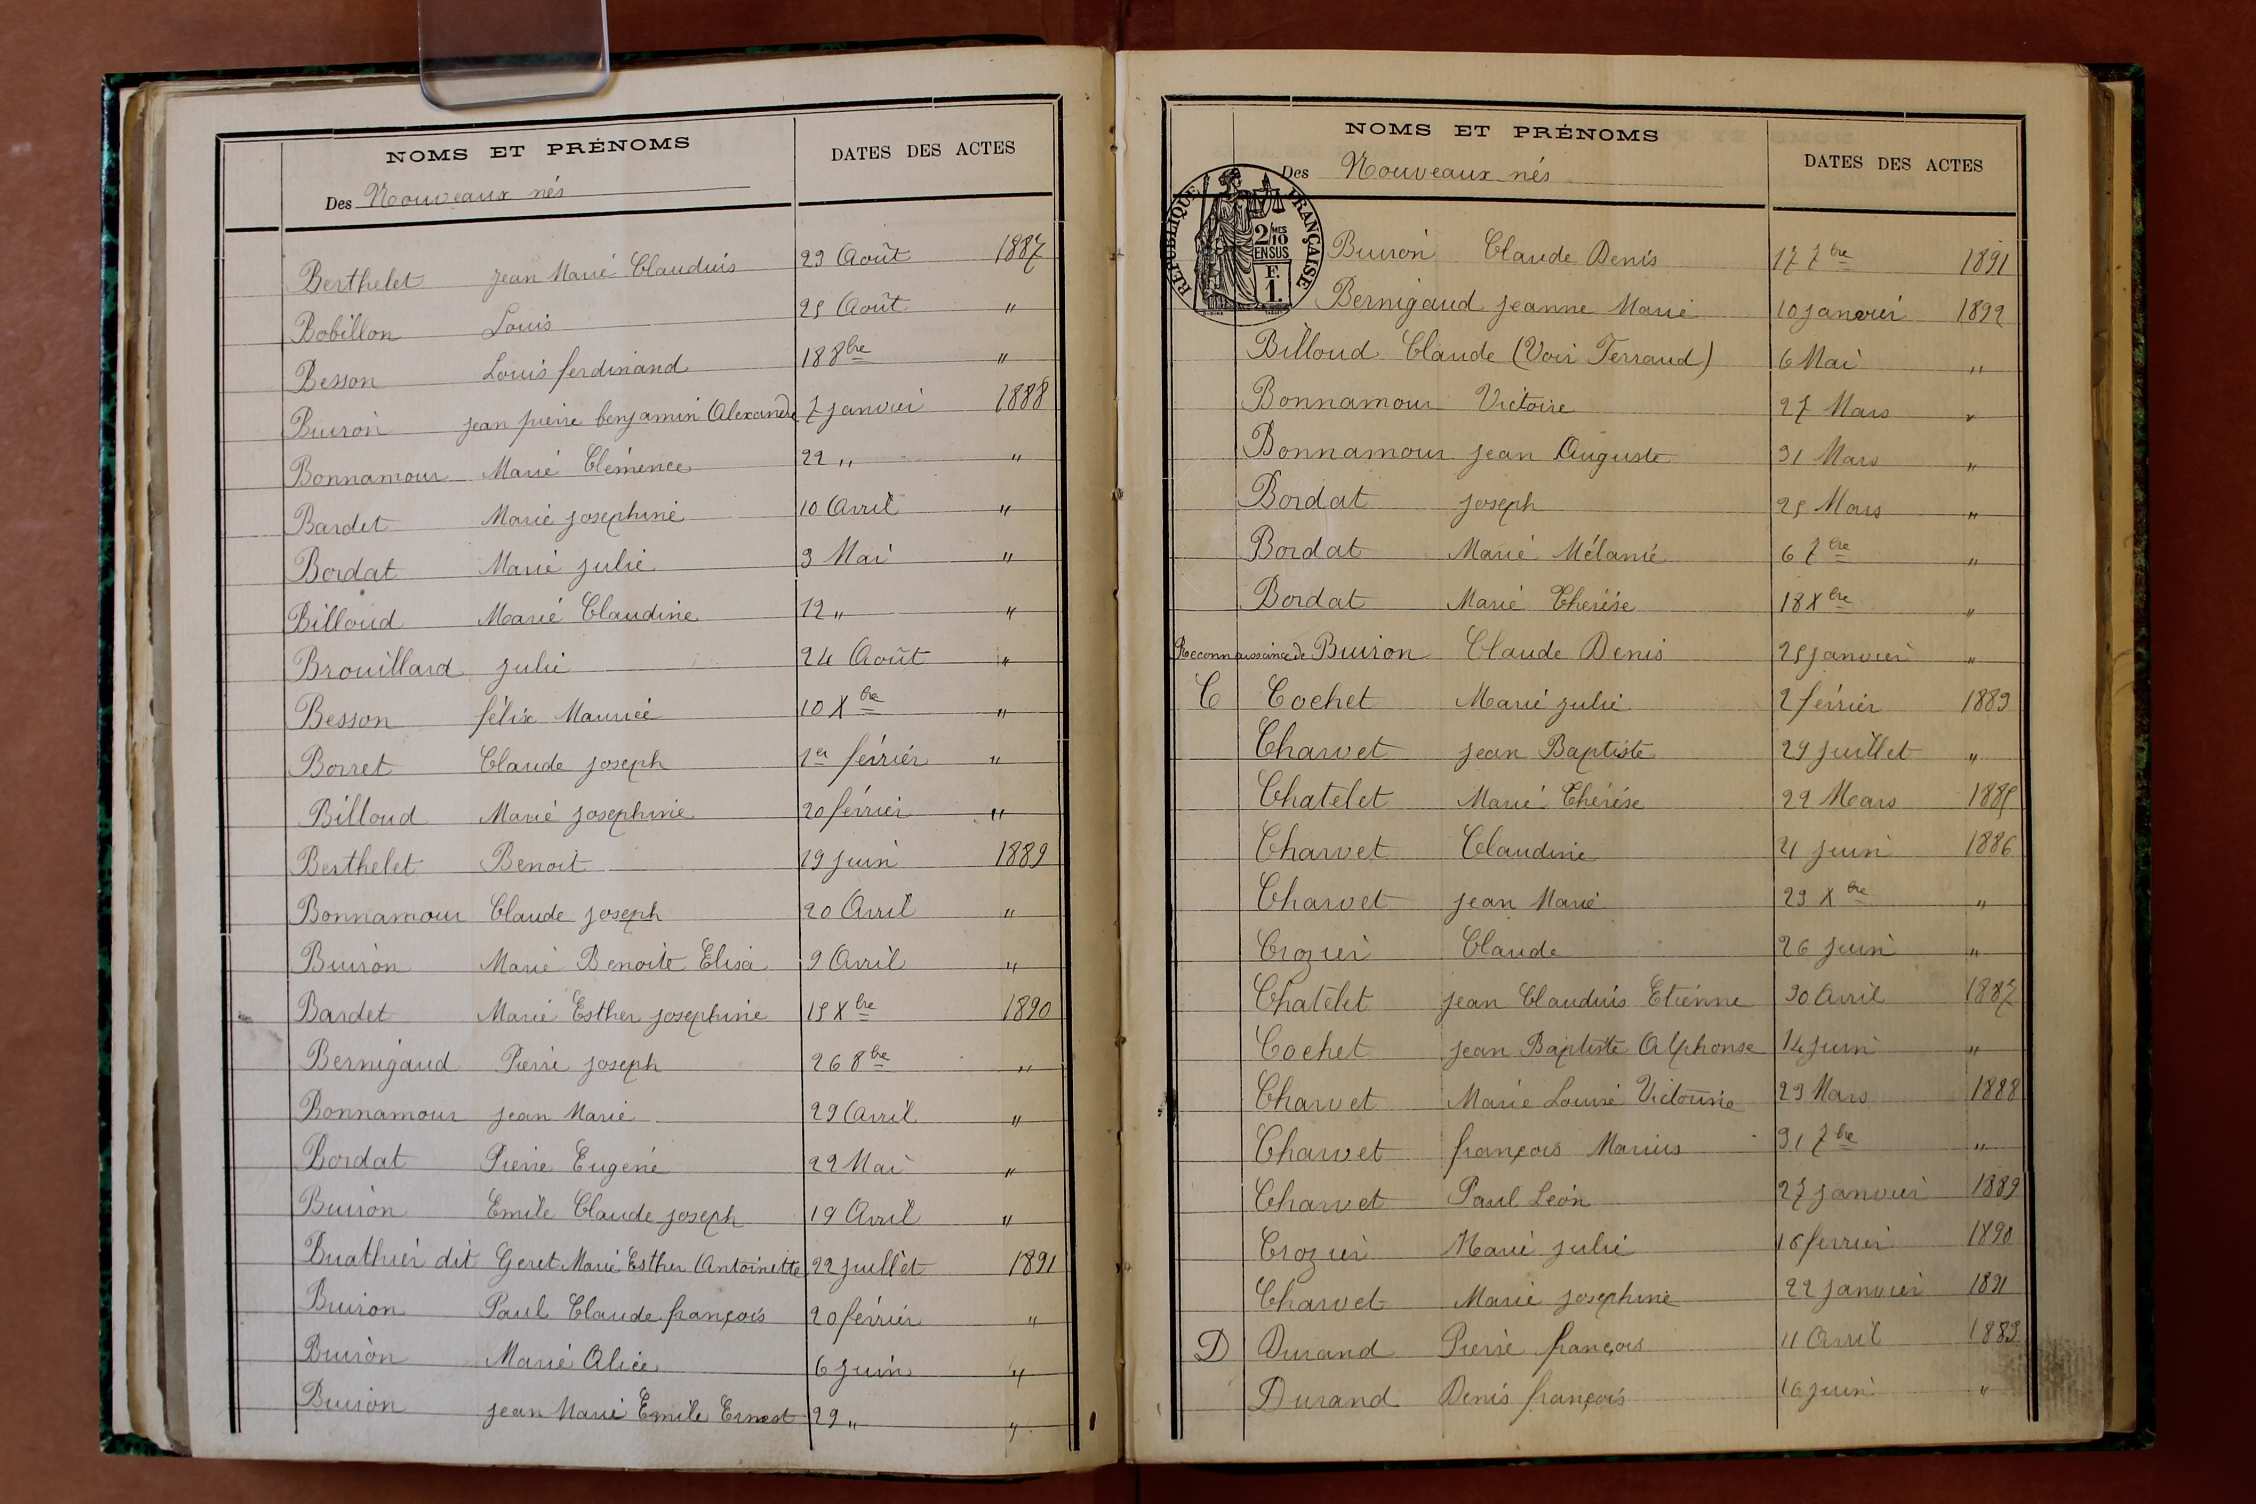 NOMS ET PRÉNOMS
DATES DES ACTES
Des Nouveaux nés
Berthelet Jean Marie Claudius 23 Août 1887
Bobillon Louis 25 Août "
Besson Louis ferdinand 18 8bre "
Buiron Jean pierre benjamin Alexandre 7 janvier 1888
Bonnamour Marie Clémence 22 " "
Bardet Marie Josephine 10 Avril "
Bordat Marie Julie 3 Mai "
Billoud Marie Claudine 12 " "
Brouillard Julie 24 Août "
Besson félix Maurice 10 Xbre "
Borret Claude Joseph 1er février "
Billoud Marie Josephine 20 février "
Berthelet Benoit 19 Juin 1889
Bonnamour Claude Joseph 20 Avril "
Buiron Marie Benoite Elisa 9 Avril "
Bardet Marie Esther Josephine 15 Xbre 1890
Bernigaud Pierre Joseph 26 8bre "
Bonnamour Jean Marie 29 Avril "
Bordat Pierre Eugène 22 Mai "
Buiron Emile Claude Joseph 19 Avril "
Buathier dit Geret Marie Esther Antoinette 22 Juillet 1891
Buiron Paul Claude françois 20 février "
Buiron Marie Alice 6 Juin "
Buiron Jean Marie Emile Ernest 29 " "
NOMS ET PRÉNOMS
DATES DES ACTES
Des Nouveaux nés
RÉPUBLIQUE FRANÇAISE
2/MES 10
EN SUS
F.
1.
Buiron Claude Denis 17 7bre 1891
Bernigaud Jeanne Marie 10 janvier 1892
Billoud Claude (Voir Terraud) 6 Mai "
Bonnamour Victoire 27 Mars "
Bonnamour Jean Auguste 31 Mars "
Bordat Joseph 25 Mars "
Bordat Marie Mélanie 6 7bre "
Bordat Marie Thérèse 18 Xbre "
Reconnaissance de Buiron Claude Denis 25 janvier "
C Cochet Marie Julie 2 février 1883
Charvet Jean Baptiste 29 Juillet "
Chatelet Marie Thérèse 22 Mars 1885
Charvet Claudine 21 Juin 1886
Charvet Jean Marie 23 Xbre "
Crozier Claude 26 Juin "
Chatelet Jean Claudius Etienne 30 Avril 1887
Cochet Jean Baptiste Alphonse 14 Juin "
Charvet Marie Louise Victorine 23 Mars 1888
Charvet françois Marius 31 7bre "
Charvet Paul Léon 27 janvier 1889
Crozier Marie Julie 16 fevrier 1890
Charvet Marie Josephine 22 janvier 1891
D Durand Pierre françois 11 Avril 1883
Durand Denis françois 16 Juin "